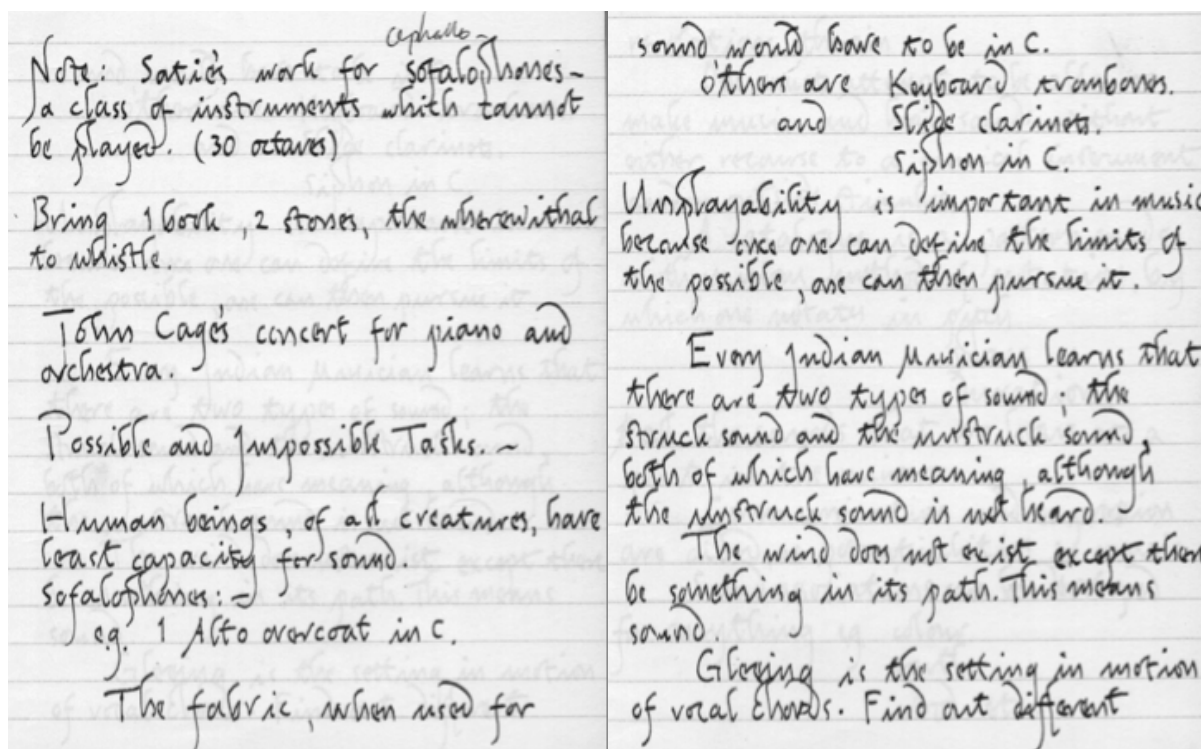 cephallo-
Note: Satie's work for sofalophones-
a class of instruments which cannot
be played. (30 octaves)
Bring 1 book, 2 stones, the wherewithal
to whistle.
John Cage's concert for piano and
orchestra.
Possible and Impossible Tasks. -
Human beings, of all creatures, have
least capacity for sound.
Sofalophones: -
e.g. 1 Alto overcoat in C.
The fabric, when used for
sound would have to be in C.
Others are Keyboard trombones.
and Slide clarinets.
Siphon in C.
Unplayability is important in music
because once one can define the limits of
the possible, one can then pursue it.
Every Indian Musician learns that
there are two types of sound; the
struck sound and the unstruck sound,
both of which have meaning, although
the unstruck sound is not heard.
The wind does not exist except there
be something in its path. This means
sound
is the setting in motion
of vocal chords. Find out different